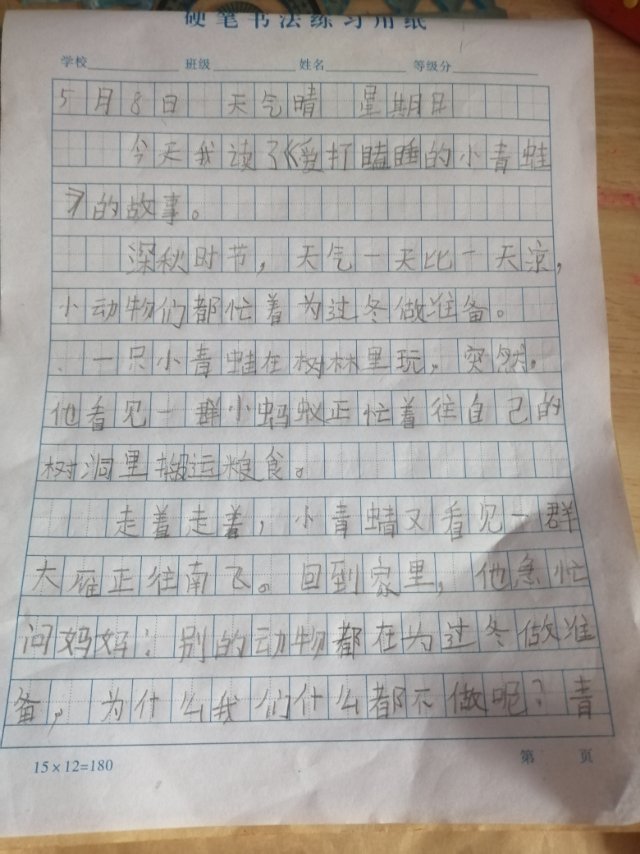 硬笔书法练习用纸
学校 班级 姓名 等级分
5月8日 天气晴 星期日
今天我读了《爱打瞌睡的小青蛙
》的故事。
深秋时节，天气一天比一天凉，
小动物们都忙着为过冬做准备。
一只小青蛙在树林里玩，突然，
他看见一群小蚂蚁正忙着往自己的
树洞里搬运粮食。
走着走着，小青蛙又看见一群
大雁正往南飞。回到家里，他急忙
问妈妈：别的动物都在为过冬做准
备，为什么我们什么都不做呢？青
15×12=180 第 页